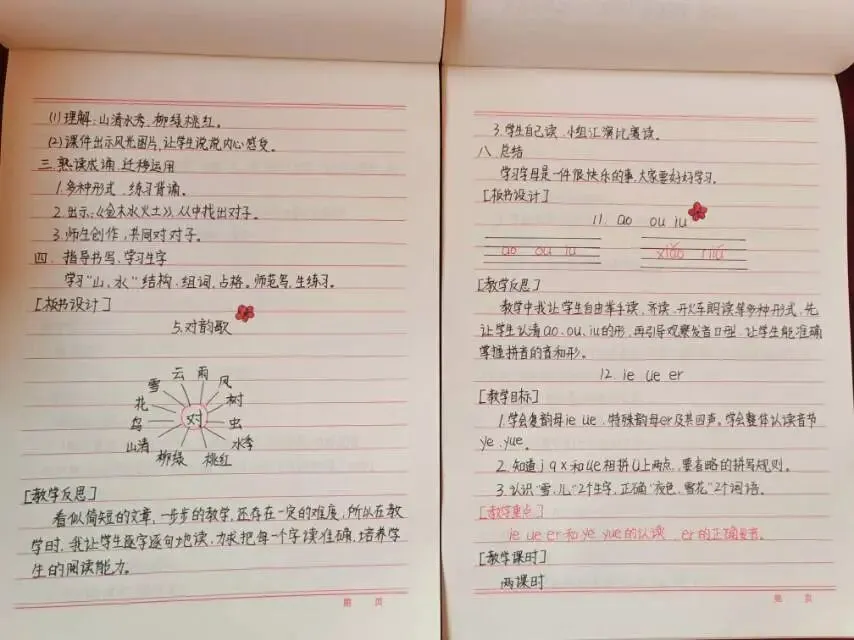 (1)理解:山清水秀、柳绿桃红。
(2)课件出示风光图片,让学生说说内心感受。
三.熟读成诵 迁移运用
1.多种形式,练习背诵。
2.出示:《金木水火土》,从中找出对子。
3.师生创作,共同对对子。
四、指导书写,学习生字
学习“山、水”结构、组词,占格。师范写,生练习。
[板书设计]
5.对韵歌
云 雨
雪 风
花 树
对
鸟 虫
山清 水秀
柳绿 桃红
[教学反思]
看似简短的文章,一步步的教学,还存在一定的难度,所以在教
学时,我让学生逐字逐句地读,力求把每一个字读准确,培养学
生的阅读能力。
第 页
3.学生自己读,小组汇演比赛读。
八、总结
学习字母是一件很快乐的事,大家要好好学习。
[板书设计]
11. ao ou iu
ao ou iu xiǎo
[教学反思]
教学中我让学生自由举手读、齐读、开火车朗读等多种形式,先
让学生认清ao、ou、iu的形,再引导观察发音口型,让学生能准确
掌握拼音的音和形。
12. ie üe er
[教学目标]
1.学会复韵母ie üe,特殊韵母er及其四声。学会整体认读音节
ye、yue。
2.知道j q x和üe相拼ü上两点,要省略的拼写规则。
3.认识“雪、儿”2个生字,正确“夜色、雪花”2个词语。
[教学重点]
ie üe er和ye yue的认读 er的正确发音。
[教学课时]
两课时
第 页